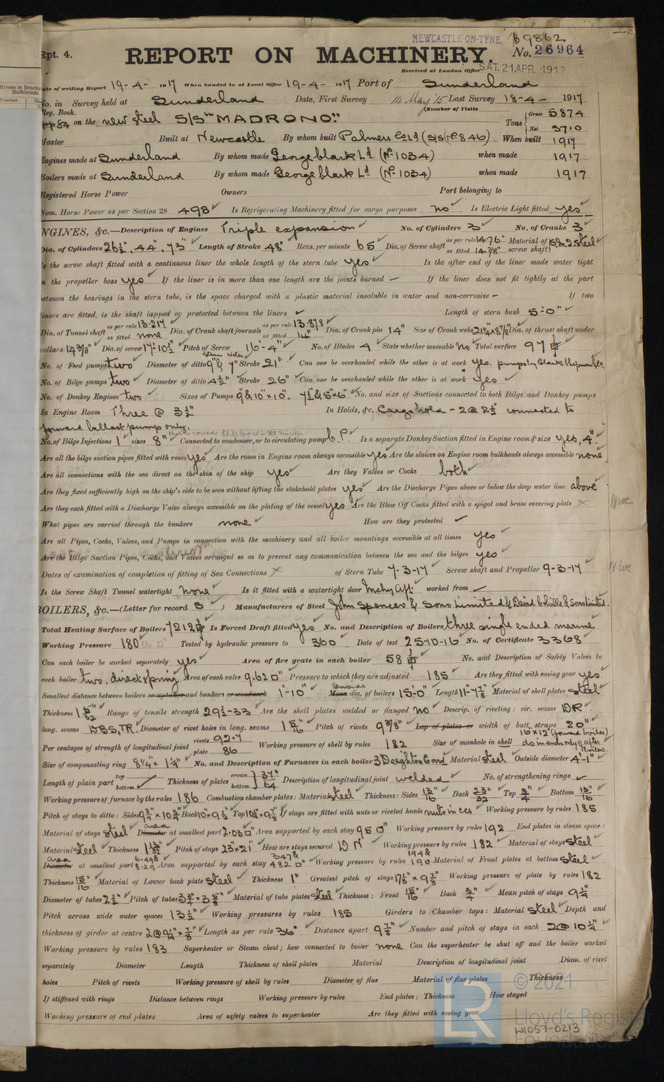 Rpt. 4.
NEWCASTLE-ON-TYNE. 69862
REPORT ON MACHINERY. No. 26964
Received at London Office SAT. 21 APR. 1917
Date of writing Report 19-4-1917 When handed in at Local Office 19-4-1917 Port of Sunderland
No. in Survey held at Sunderland Date, First Survey 14 May '15 Last Survey 18-4-1917
Reg. Book. (Number of Visits
on the new steel S/S "MADRONO." Tons { Gross 5874 Net 3710
Master Built at Newcastle By whom built Palmers Co Ld (S/S No 846) When built 1917
Engines made at Sunderland By whom made George Clark Ld (No 1034) when made 1917
Boilers made at Sunderland By whom made George Clark Ld (No 1034) when made 1917
Registered Horse Power Owners Port belonging to
Nom. Horse Power as per Section 28 498 Is Refrigerating Machinery fitted for cargo purposes no Is Electric Light fitted yes
ENGINES, &c.—Description of Engines Triple expansion No. of Cylinders 3 No. of Cranks 3
Dia. of Cylinders 26½", 44", 73" Length of Stroke 48" Revs. per minute 65 Dia. of Screw shaft as per rule 14.76" as fitted 14⅞" Material of screw shaft steel
Is the screw shaft fitted with a continuous liner the whole length of the stern tube yes Is the after end of the liner made water tight
in the propeller boss yes If the liner is in more than one length are the joints burned — If the liner does not fit tightly at the part
between the bearings in the stern tube, is the space charged with a plastic material insoluble in water and non-corrosive — If two
liners are fitted, is the shaft lapped or protected between the liners Length of stern bush 5'-0"
Dia. of Tunnel shaft as per rule 13.217 as fitted none Dia. of Crank shaft journals as per rule 13.878 as fitted 14" Dia. of Crank pin 14" Size of Crank webs Dia. of thrust shaft under
collars 14⅜" Dia. of screw 17'-10½" Pitch of Screw 16'-4" No. of Blades 4 State whether moveable no Total surface 97
No. of Feed pumps two Diameter of ditto 9" & 7" Stroke 21" Can one be overhauled while the other is at work yes.
No. of Bilge pumps two Diameter of ditto 4½" Stroke 26" Can one be overhauled while the other is at work yes
No. of Donkey Engines two Sizes of Pumps 9&10"×10", 7½&5×6" No. and size of Suctions connected to both Bilge and Donkey pumps
In Engine Room Three @ 3½" In Holds, &c. Cargo hold - 2 @ 2½" connected to
forward ballast pump only.
No. of Bilge Injections 1 sizes 8" Connected to condenser, or to circulating pump C.P. Is a separate Donkey Suction fitted in Engine room & size yes, 4"
Are all the bilge suction pipes fitted with roses yes Are the roses in Engine room always accessible yes Are the sluices on Engine room bulkheads always accessible none
Are all connections with the sea direct on the skin of the ship yes Are they Valves or Cocks both
Are they fixed sufficiently high on the ship's side to be seen without lifting the stokehold plates yes Are the Discharge Pipes above or below the deep water line above
Are they each fitted with a Discharge Valve always accessible on the plating of the vessel yes Are the Blow Off Cocks fitted with a spigot and brass covering plate ×
What pipes are carried through the bunkers none How are they protected
Are all Pipes, Cocks, Valves, and Pumps in connection with the machinery and all boiler mountings accessible at all times yes
Are the Bilge Suction Pipes, Cocks, and Valves arranged so as to prevent any communication between the sea and the bilges yes
Dates of examination of completion of fitting of Sea Connections × of Stern Tube 7-3-17 Screw shaft and Propeller 9-3-17
Is the Screw Shaft Tunnel watertight none Is it fitted with a watertight door worked from
BOILERS, &c.—(Letter for record S) Manufacturers of Steel John Spencer & Sons Limited & David Colville & Sons Limited.
Total Heating Surface of Boilers 7212 Is Forced Draft fitted yes No. and Description of Boilers three single ended marine
Working Pressure 180 Tested by hydraulic pressure to 360 Date of test 25-10-16 No. of Certificate 3368
Can each boiler be worked separately yes Area of fire grate in each boiler 58 No. and Description of Safety Valves to
each boiler two, direct spring Area of each valve 9.62 Pressure to which they are adjusted 185 Are they fitted with easing gear yes
Smallest distance between boilers or uptakes and bunkers or woodwork 1'-10" Mean dia. of boilers 15'-0" Length 11'-7½" Material of shell plates steel
Thickness 1 5/32 Range of tensile strength 29½-33 Are the shell plates welded or flanged no Descrip. of riveting: cir. seams DR
long. seams DBS,TR. Diameter of rivet holes in long. seams 1 5/16 Pitch of rivets 9⅜" Lap of plates or width of butt straps 20"
Per centages of strength of longitudinal joint rivets 92.7 plate 86 Working pressure of shell by rules 182 Size of manhole in shell 16×12 (forward boiler)
Size of compensating ring 8¼"×1¼" No. and Description of Furnaces in each boiler 3 Deighton Cor. Material steel Outside diameter 4'-1"
Length of plain part top bottom Thickness of plates crown bottom 37/64 Description of longitudinal joint welded No. of strengthening rings
Working pressure of furnace by the rules 186 Combustion chamber plates: Material steel Thickness: Sides 13/16 Back 23/32 Top 3/4 Bottom 13/16
Pitch of stays to ditto: Sides Back Top If stays are fitted with nuts or riveted heads nuts in ccs Working pressure by rules 185
Material of stays steel area at smallest part 2.060" Area supported by each stay 95.0 Working pressure by rules 192 End plates in steam space:
Material steel Thickness Pitch of stays 23×21 How are stays secured DN Working pressure by rules 182 Material of stays steel
area Diameter at smallest part Area supported by each stay Working pressure by rules 190 Material of Front plates at bottom steel
Thickness 15/16 Material of Lower back plate steel Thickness 1" Greatest pitch of stays Working pressure of plate by rules 182
Diameter of tubes 2½" Pitch of tubes Material of tube plates steel Thickness: Front 15/16 Back 3/4" Mean pitch of stays 9¼
Pitch across wide water spaces 13½" Working pressures by rules 185 Girders to Chamber tops: Material steel Depth and
thickness of girder at centre Length as per rule 36" Distance apart Number and pitch of stays in each 2 @ 10¼"
Working pressure by rules 183 Superheater or Steam chest; how connected to boiler none Can the superheater be shut off and the boiler worked
separately Diameter Length Thickness of shell plates Material Description of longitudinal joint Diam. of rivet
holes Pitch of rivets Working pressure of shell by rules Diameter of flue Material of flue plates Thickness
If stiffened with rings Distance between rings Working pressure by rules End plates: Thickness How stayed
Working pressure of end plates Area of safety valves to superheater Are they fitted with easing gear
© 2021
Lloyd's Register
Foundation
W1057-0213